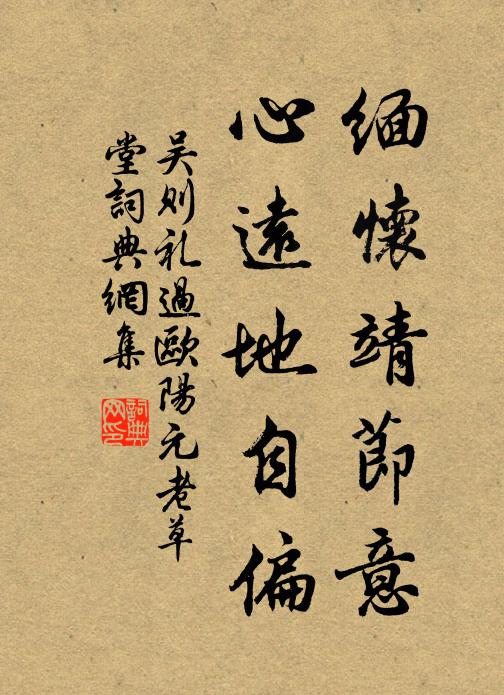 緬懷靖節意
心遠地自偏
吴则礼過歐陽元老草
堂詞典網集
詞典
网印